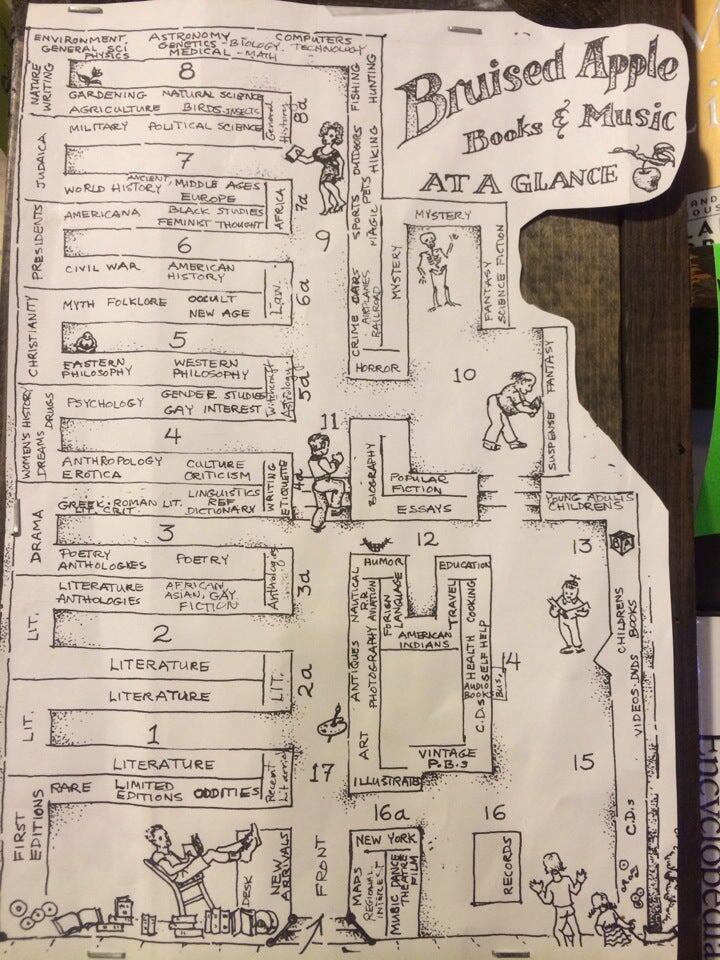 Bruised Apple
Books & Music
AT A GLANCE
ENVIRONMENT
GENERAL SCI
PHYSICS
ASTRONOMY
GENETICS - BIOLOGY
MEDICAL - MATH
COMPUTERS
TECHNOLOGY
NATURE
WRITING
8
GARDENING NATURAL SCIENCE
AGRICULTURE BIRDS, INSECTS
General
History
8a
MILITARY POLITICAL SCIENCE
JUDAICA
7
WORLD HISTORY
ANCIENT, MIDDLE AGES
EUROPE
AFRICA
7a
AMERICANA
BLACK STUDIES
FEMINIST THOUGHT
PRESIDENTS
6
CIVIL WAR
AMERICAN
HISTORY
Law
6a
MYTH FOLKLORE
OCCULT
NEW AGE
CHRISTIANITY
5
EASTERN
PHILOSOPHY
WESTERN
PHILOSOPHY
Witchcraft
Astrology
5a
PSYCHOLOGY
GENDER STUDIES
GAY INTEREST
WOMEN'S HISTORY
DREAMS DRUGS
4
ANTHROPOLOGY
EROTICA
CULTURE
CRITICISM
WRITING
ETIQUETTE
4a
GREEK-ROMAN LIT.
LIT. CRIT.
LINGUISTICS
REF
DICTIONARY
DRAMA
3
POETRY
ANTHOLOGIES
POETRY
Anthologies
3a
LITERATURE
ANTHOLOGIES
AFRICAN,
ASIAN, GAY
FICTION
LIT.
2
LITERATURE
LIT.
2a
LITERATURE
LIT.
1
LITERATURE
Recent
RARE
LIMITED
EDITIONS
ODDITIES
FIRST
EDITIONS
DESK
NEW
ARRIVALS
FRONT
17
9
FISHING
HUNTING
SPORTS OUTDOORS
MAGIC PETS HIKING
CRIME CARS
AIRPLANES
RAILROAD
HORROR
MYSTERY
MYSTERY
FANTASY
SCIENCE FICTION
10
SUSPENSE FANTASY
11
BIOGRAPHY
POPULAR
FICTION
ESSAYS
YOUNG ADULTS
CHILDRENS
12
13
HUMOR
EDUCATION
ANTIQUES NAUTICAL
PHOTOGRAPHY AVIATION
R.R.
FORIGN
LANGUAGE
AMERICAN
INDIANS
TRAVEL
COOKING
HEALTH
SELF HELP
AUDIO
BOOKS
C.D.s
BUS.
14
ART
VINTAGE
P.B.s
ILLUSTRATED
CHILDRENS
BOOKS
VIDEOS-DVDS
15
C.D.s
16a
16
NEW YORK
MAPS
REGIONAL
INTEREST
MUSIC DANCE
THEATRE
FILM
RECORDS
Encyclopedia